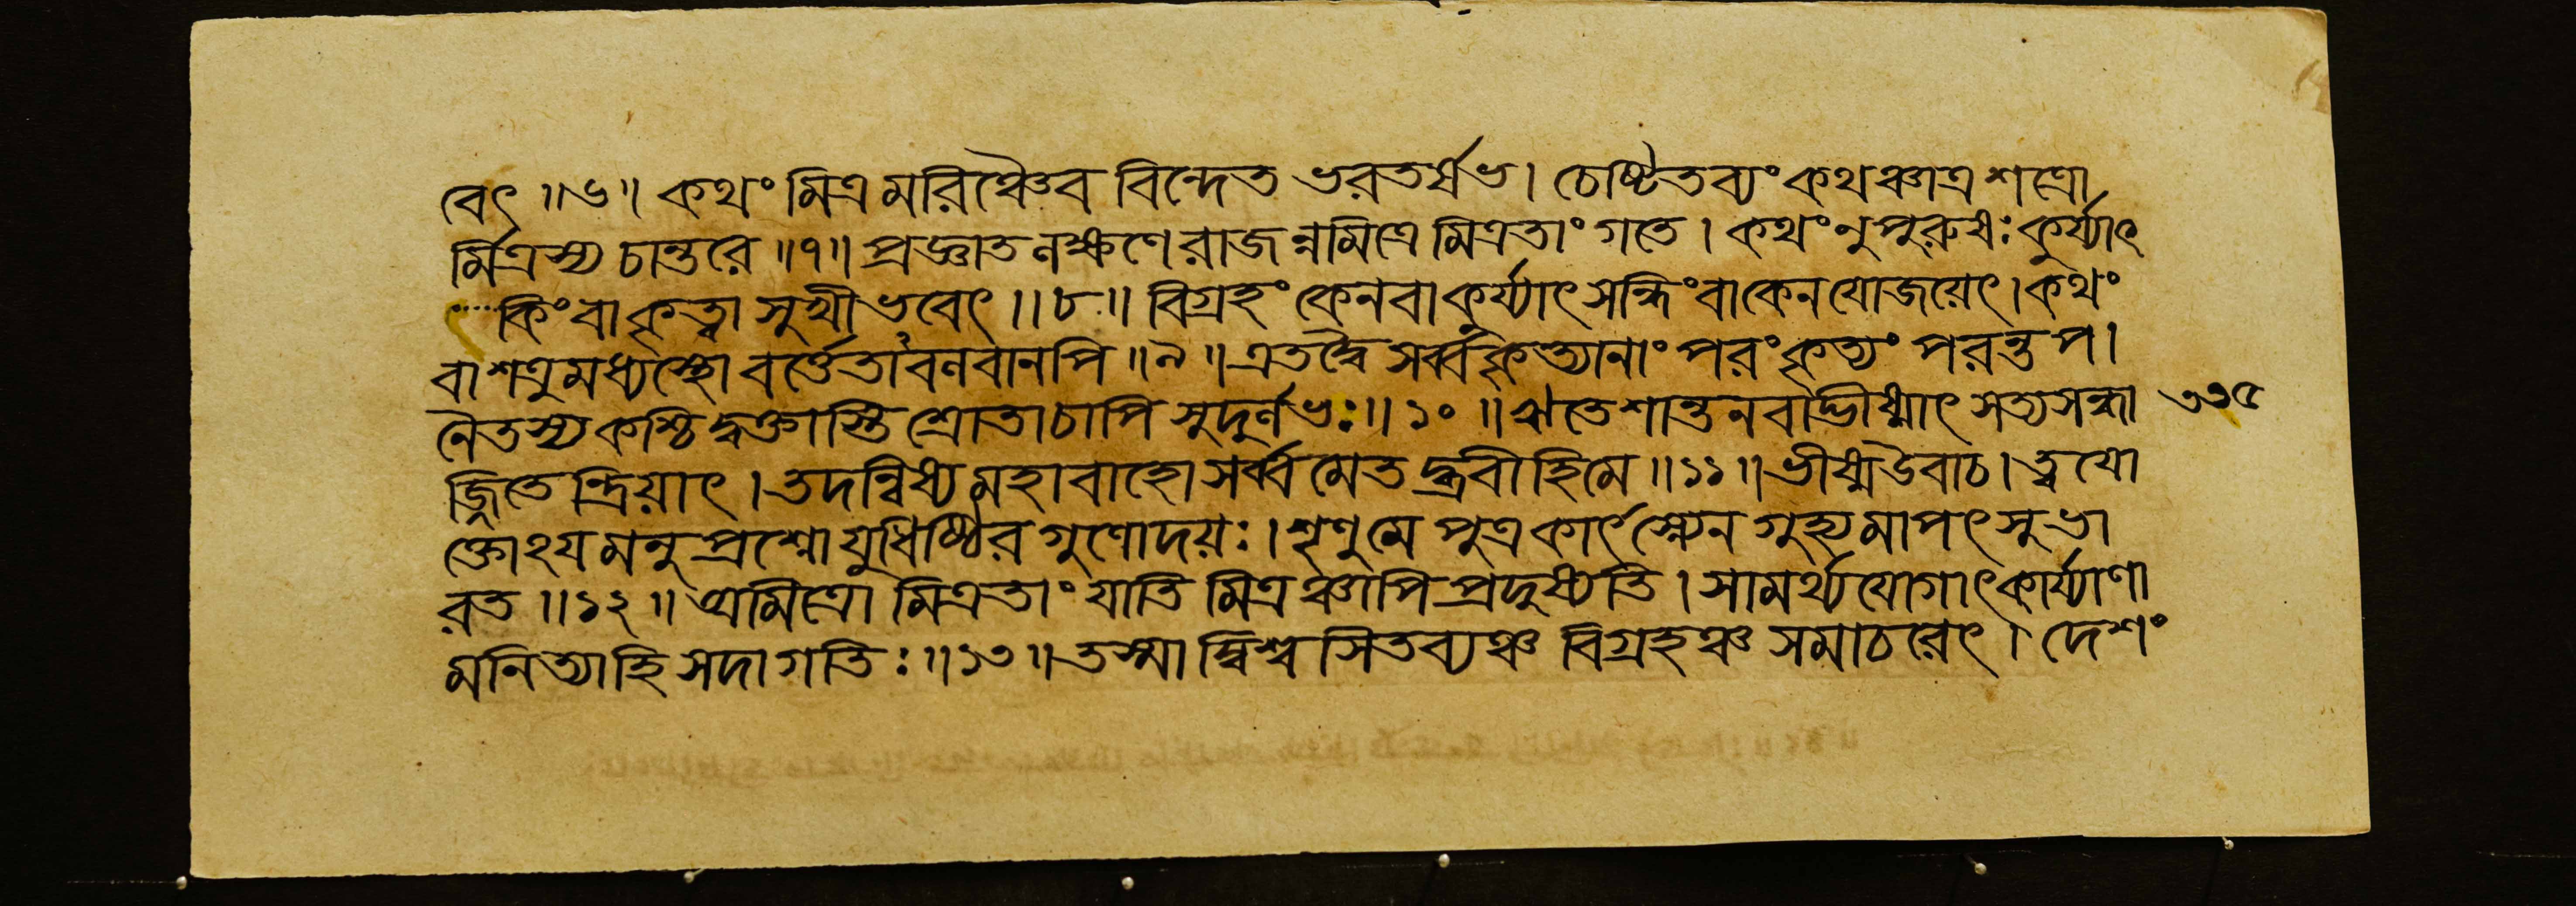 বেৎ ॥৬॥ কথং মিত্রমরিঞ্চৈব বিন্দেত ভরতর্ষভ। চেষ্টিতব্যং কথঞ্চাত্র শত্রো
র্মিত্রস্য চান্তরে ॥৭॥ প্রজ্ঞাতলক্ষণে রাজন্নমিত্রে মিত্রতাং গতে। কথং নু পুরুষঃ কুর্য্যাৎ
কিং বা কৃত্বা সুখী ভবেৎ ॥৮॥ বিগ্রহং কেন বা কুর্য্যাৎ সন্ধিং বা কেন যোজয়েৎ। কথং
বা শত্রুমধ্যস্থো বর্ত্তেতাবলবানপি ॥৯॥ এতদ্বৈ সর্ব্বকৃত্যানাং পরং কৃত্যং পরন্তপ।
নৈতস্য কশ্চিদ্বক্তাস্তি শ্রোতা চাপি সুদুর্লভঃ ॥১০॥ ঋতে শান্তনবাদ্ভীষ্মাৎ সত্যসন্ধা ৩৩৫
জ্জিতেন্দ্রিয়াৎ। তদন্বিষ্য মহাবাহো সর্ব্বমেতদ্ব্রবীহি মে ॥১১॥ ভীষ্ম উবাচ। ত্বদ্যো
ক্তোঽয়মনুপ্রশ্নো যুধিষ্ঠির গুণোদয়ঃ। শৃণু মে পুত্র কার্ৎস্ন্যেন গুহ্যমাপৎসু ভা
রত ॥১২॥ অমিত্রো মিত্রতাং যাতি মিত্রঞ্চাপি প্রদুষ্যতি। সামর্থ্যযোগাৎ কার্য্যাণা
মনিত্যা হি সদা গতিঃ ॥১৩॥ তস্মাদ্বিশ্বসিতব্যঞ্চ বিগ্রহঞ্চ সমাচরেৎ। দেশং